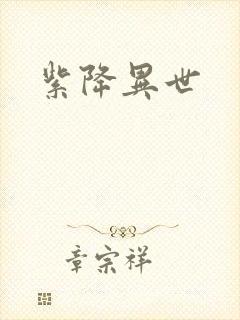 紫降異世
章宗祥